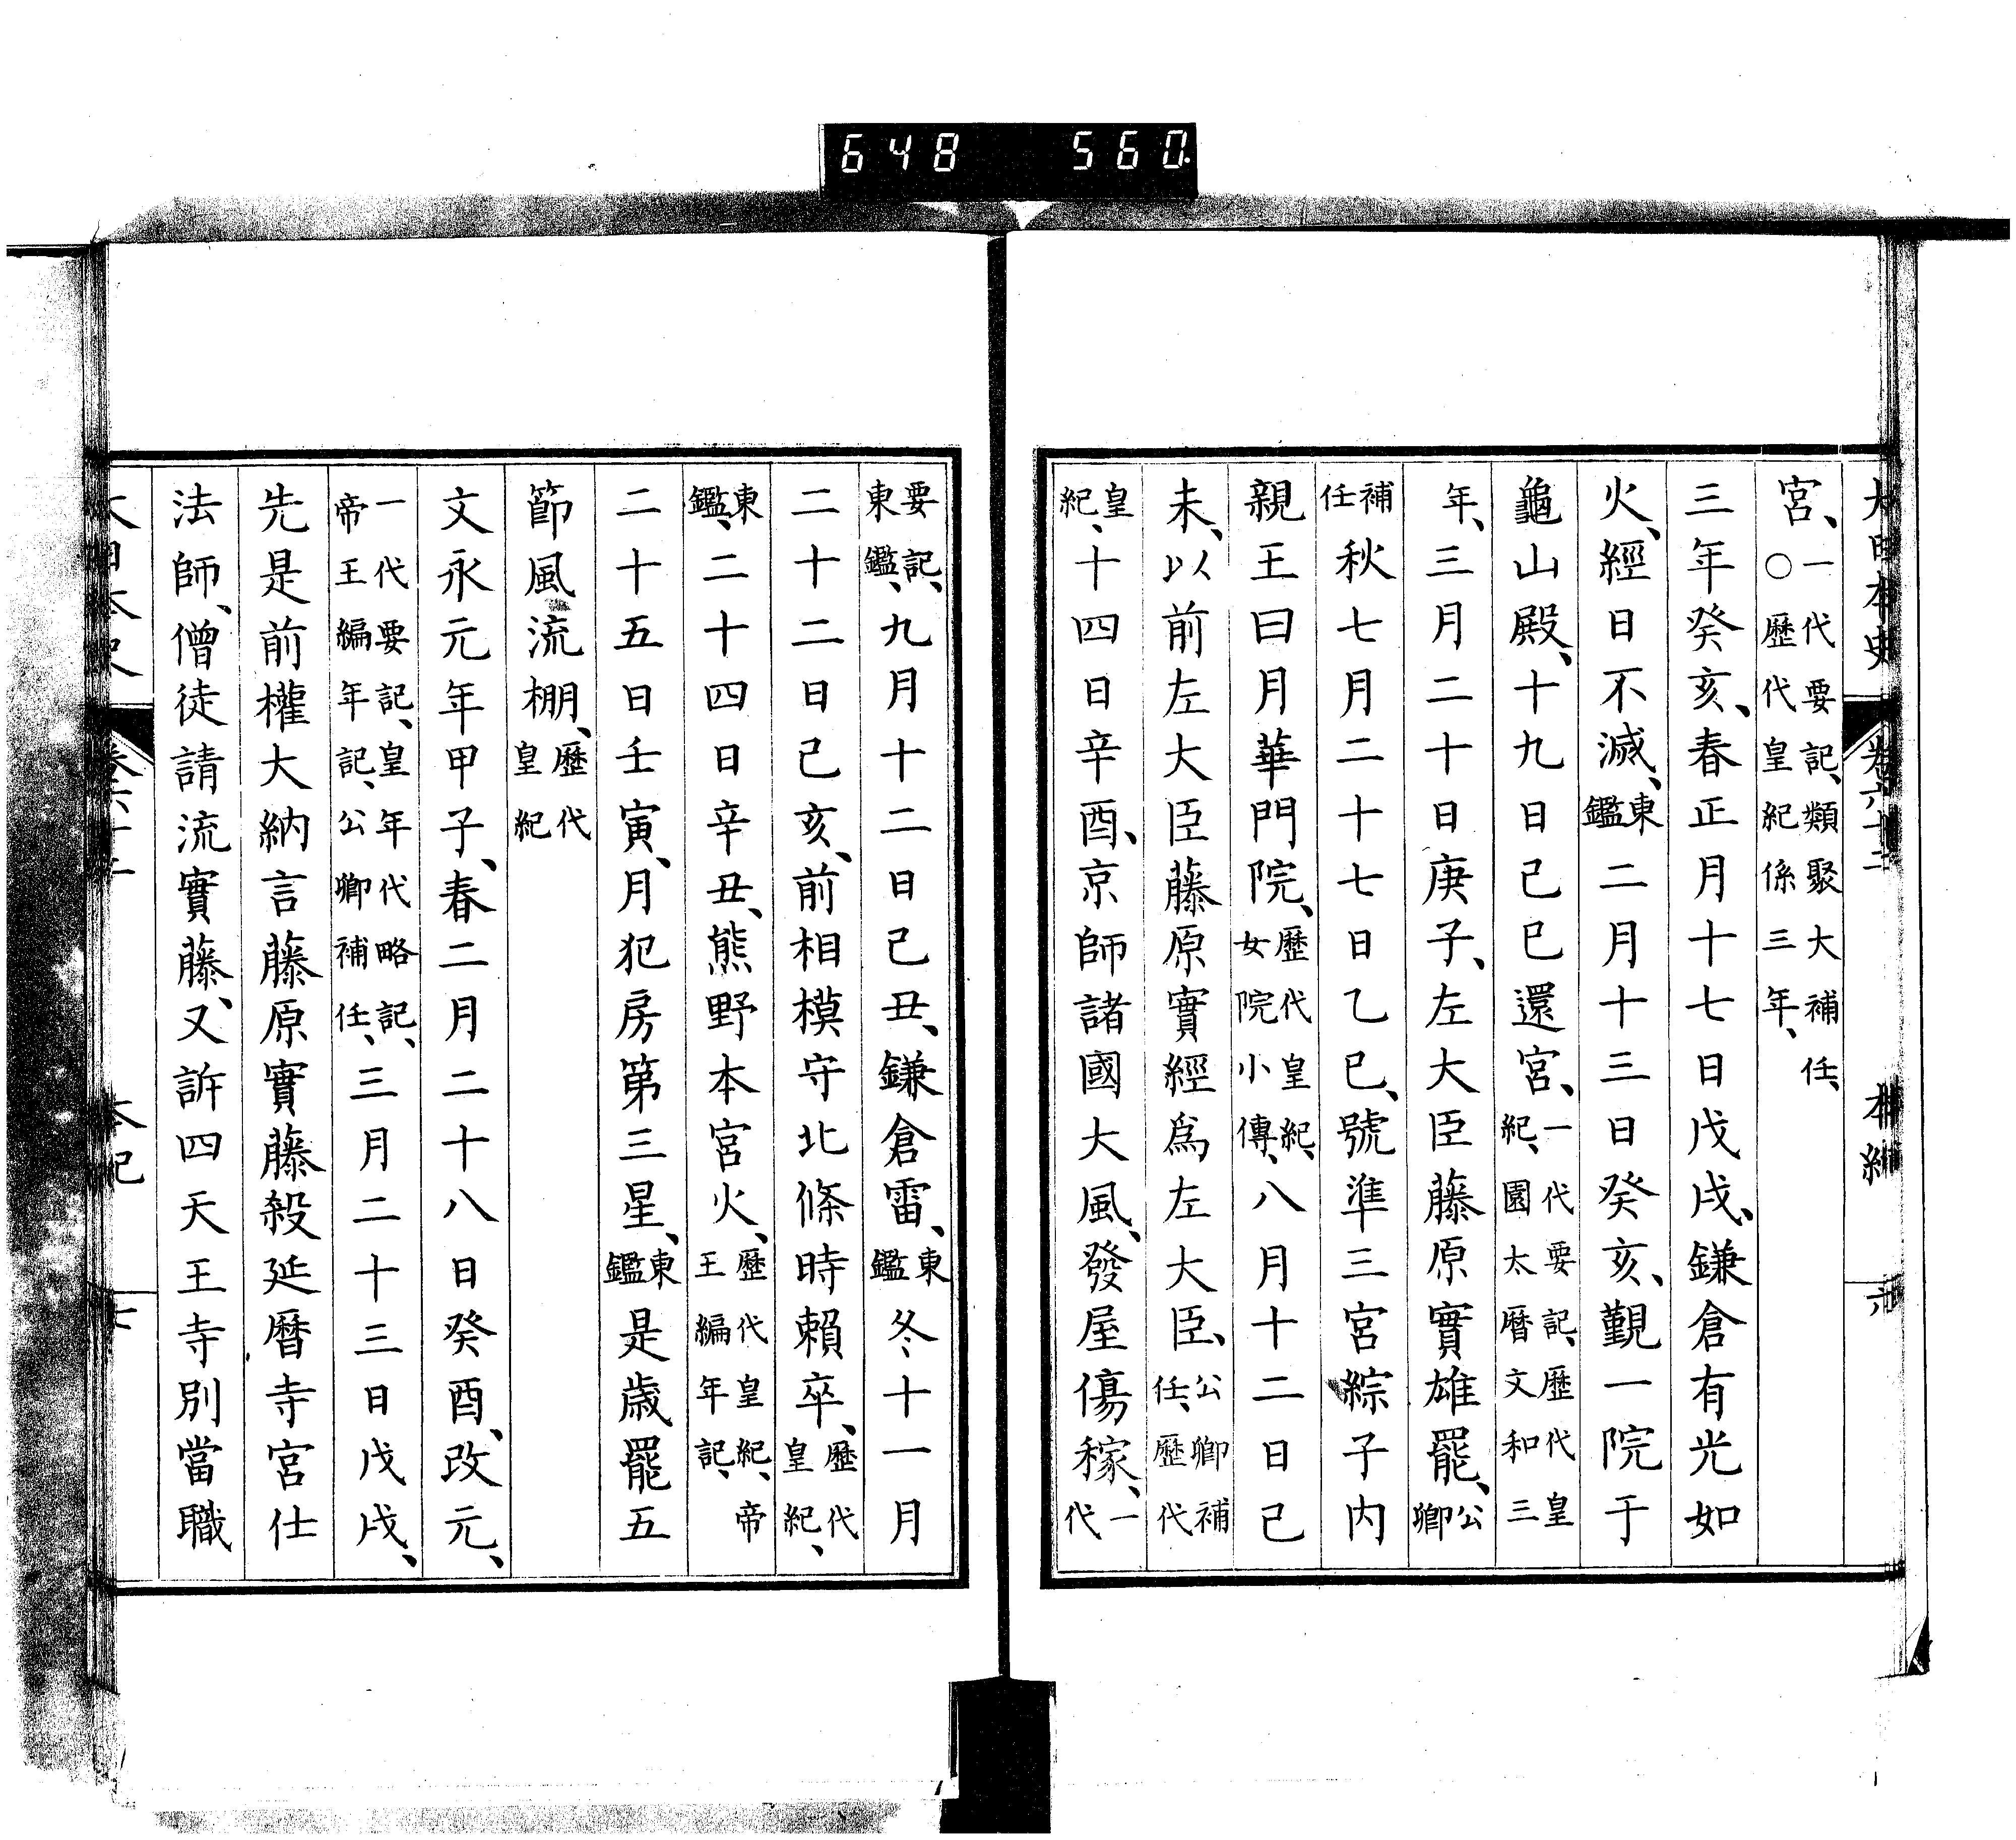 648 560
大日本史 卷六十二 本紀 六
宮、一代要記、類聚大補任、○歷代皇紀係三年、
三年癸亥、春正月十七日戊戌、鎌倉有光如
火、經日不滅、東鑑二月十三日癸亥、覲一院于
龜山殿、十九日己巳還宮、一代要記、歷代皇紀、園太曆文和三
年、三月二十日庚子、左大臣藤原實雄罷、公卿
補任秋七月二十七日乙巳、號準三宮綜子內
親王曰月華門院、歷代皇紀、女院小傳、八月十二日己
未、以前左大臣藤原實經爲左大臣、公卿補任、歷代
皇紀、十四日辛酉、京師諸國大風、發屋傷稼、一代
要記、東鑑、九月十二日己丑、鎌倉雷、東鑑冬十一月
二十二日己亥、前相模守北條時賴卒、歷代皇紀、
東鑑、二十四日辛丑、熊野本宮火、歷代皇紀、帝王編年記、
二十五日壬寅、月犯房第三星、東鑑是歲、罷五
節風流棚、歷代皇紀
文永元年甲子、春二月二十八日癸酉、改元、
一代要記、皇年代略記、帝王編年記、公卿補任、三月二十三日戊戌、
先是前權大納言藤原實藤殺延曆寺宮仕
法師、僧徒請流實藤、又訴四天王寺別當職
大日本史 卷六十二 本紀 七